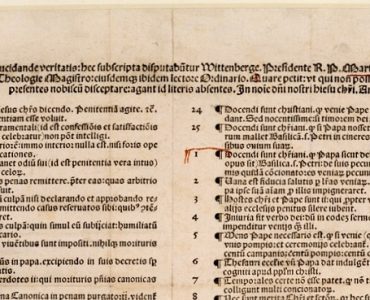 ucidande veritatis: hec subscripta disputabũtur Wittenberge. Presidente R. P. Mar
Theologie Magistro: eiusdemqꝫ ibidem lectore Ordinario. Quare petit: vt qui non poss
presentes nobiscũ disceptare: agant id literis absentes. In noĩe dñi nostri hiesu chr̃i. A
esus chr̃s dicendo. Penitentiã agite. ⁊c̃.
entiam esse voluit.
ramentali (id est confessiõis et satisfactiõis
celebratur) non põt intelligi.
riorẽ: immo interior nulla est. nisi foris ope
cationes.
odium sui (id est penitentia vera intus)
celoꝝ.
s penas remittere. p̃ter eas: quas arbitrio
suit.
culpã nisi declarando et approbando re
mittendo casus reseruatos sibi: quibꝰ
ret.
culpã: quin simul eũ subijciat: humiliatũ
io.
viuẽtibus sunt impositi. nihilqꝫ morituris
oni.
in papa. excipiendo in suis decretis sp̃
tis.
erdotes ij: qui morituris pñias canonicas
na Canonica in penam purgatorij. vident̃
24 Docendi sunt christiani. ꝙ venie Pape
dant. Sed nocentissime: si timorem dei
25 Docendi sunt chr̃iani. ꝙ si Papa nosset
rum mallet Basilicã. S. Petri in cineres
sibus ouium suaꝝ.
1 Docendi sunt chr̃iani. ꝙ Papa sicut de
opus sit) Basilica. S. Petri: de suis pecunijs
mis quidã concionatores veniaꝝ pecuniã
2 Uana est fiducia salutis ꝑ lr̃as veniaꝝ.
pa ipse suã aĩam ꝓ illis impigneraret.
3 Hostes chr̃i et Pape sunt ij: qui
alijs ecclesijs penitus silere iubent.
4 Iniuria fit verbo dei: dũ in eodẽ sermone
impenditur venijs ꝙ illi.
5 Mens Pape necessario est. ꝙ si venie (qd
vnis pompis: et ceremonijs celebrant̃
centũ campanis: centũ pompis: centũ
6 Thesauri ecclesie vñ Papa dat indulgẽtias
cogniti apud ppl̃m chr̃isti.
7 Temporales certe nõ esse patet. quod nõ
colligunt multi concionatorum.
8